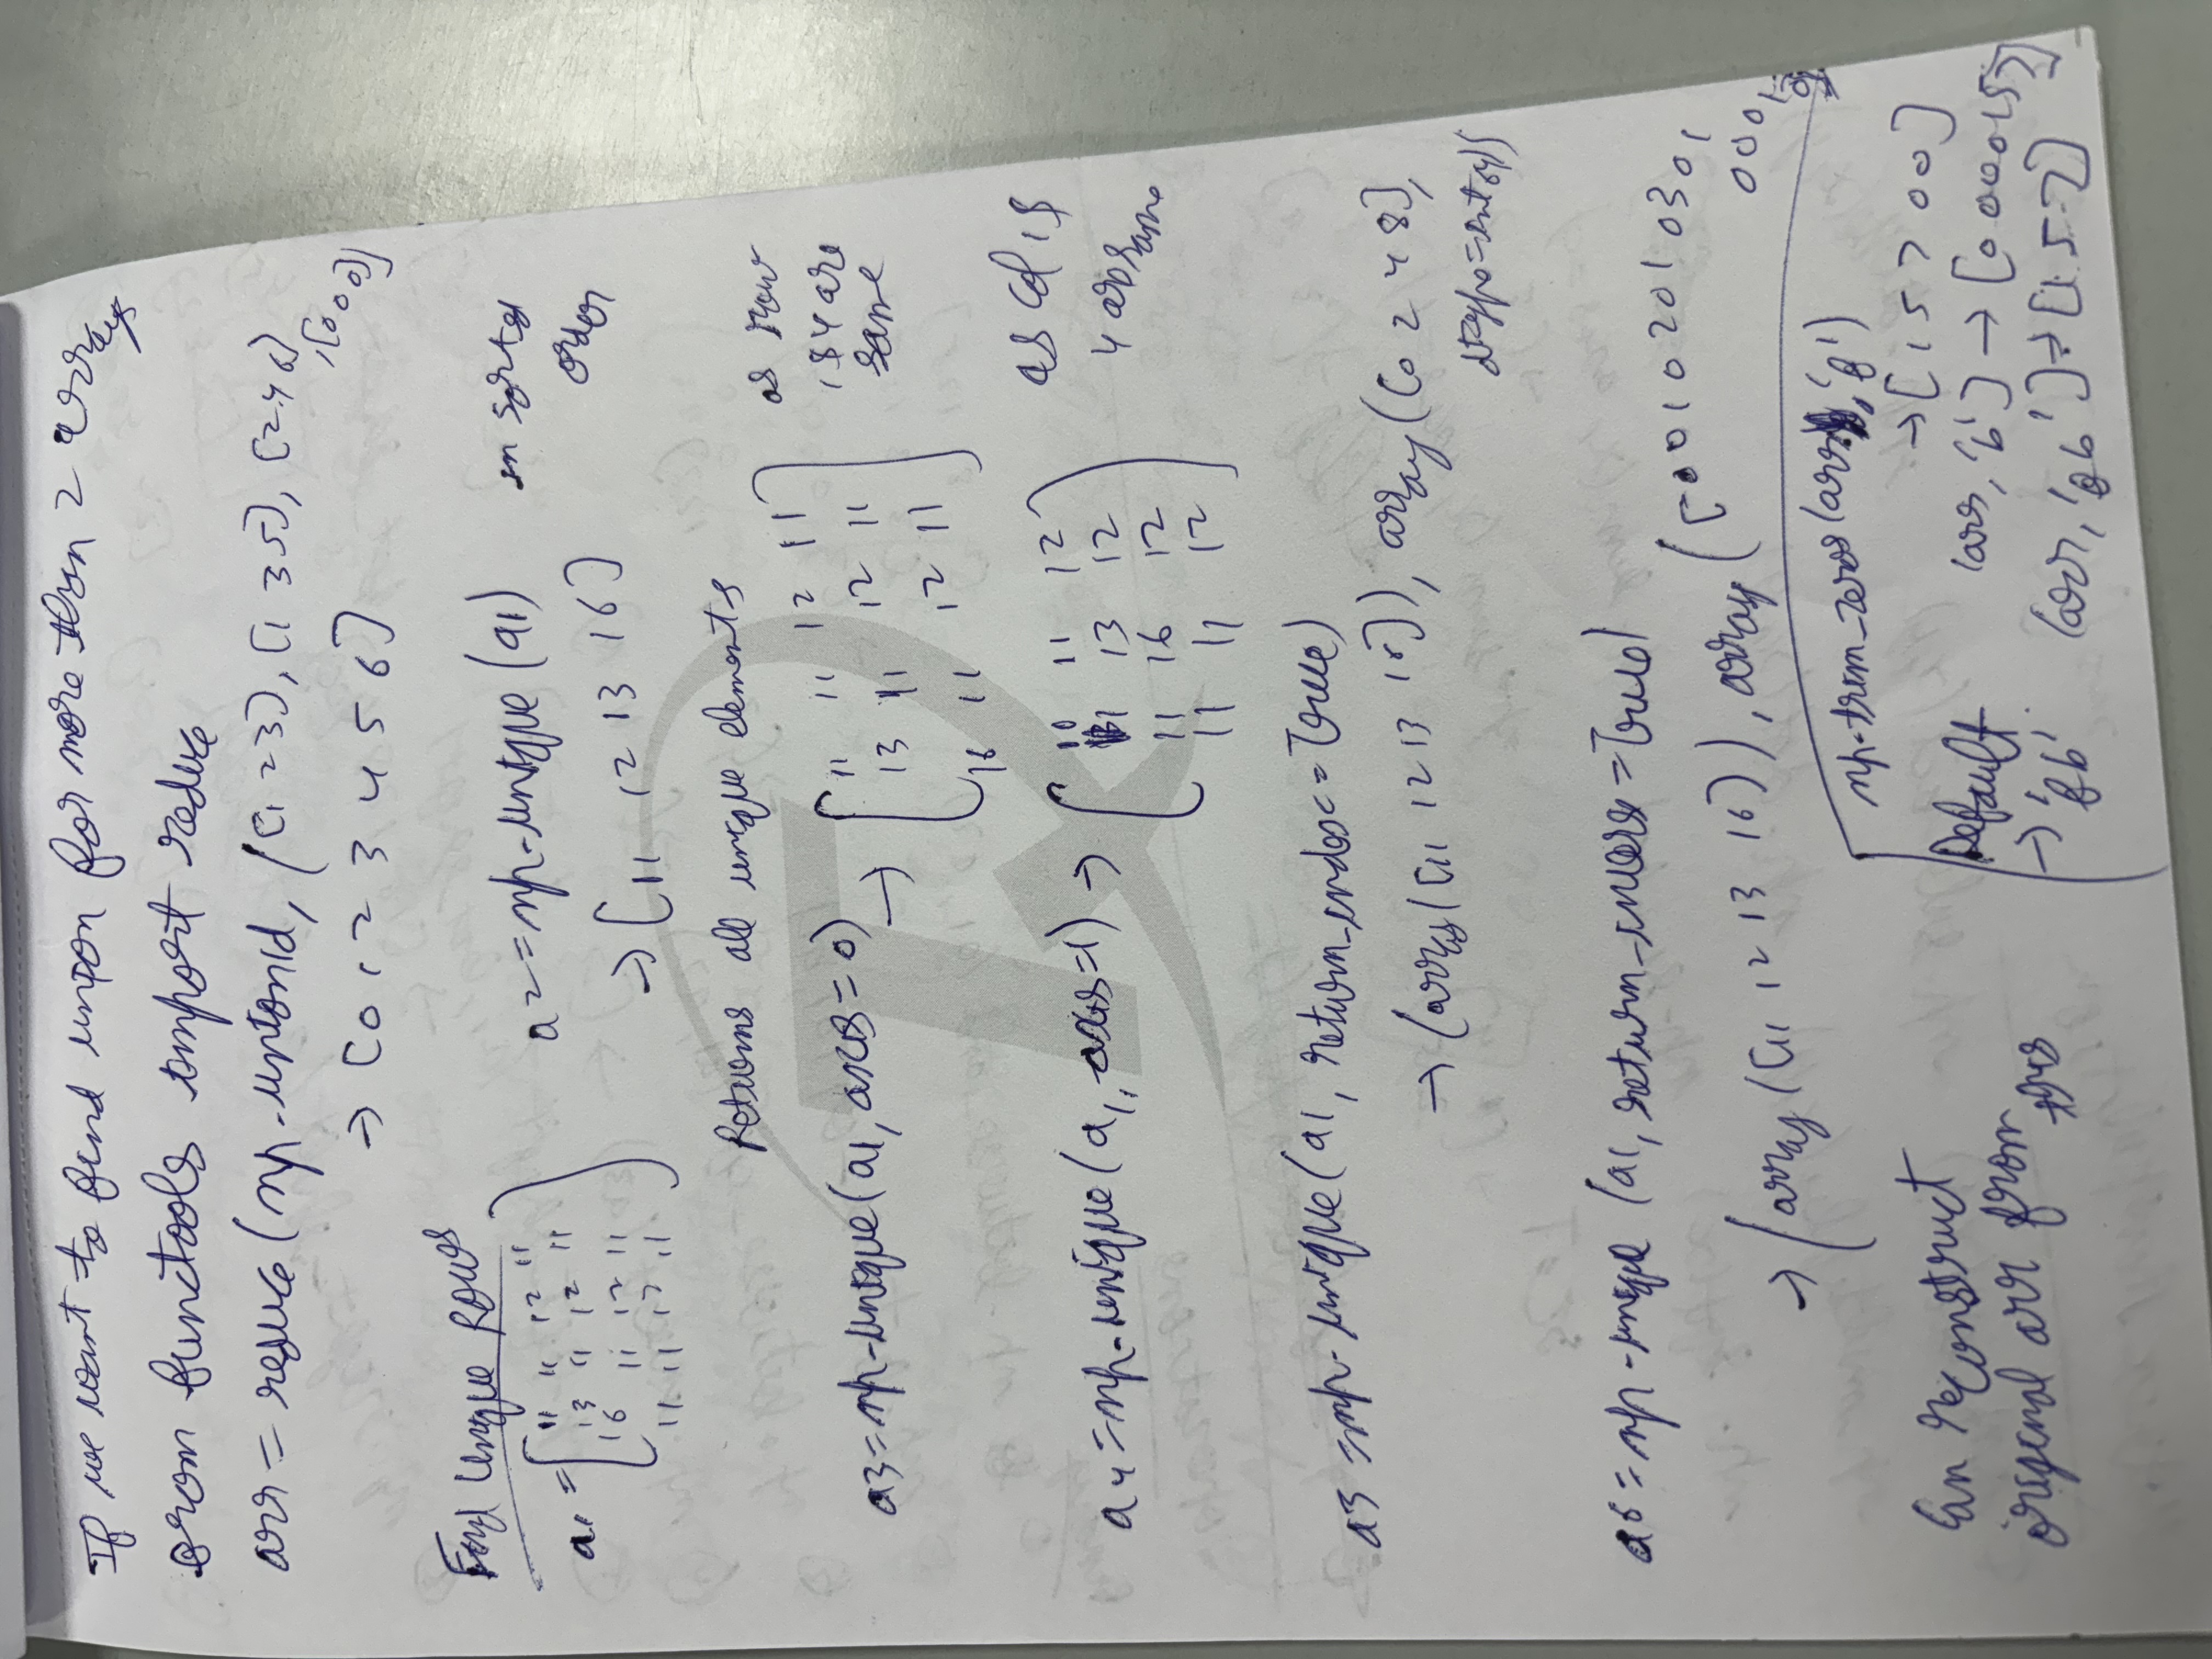 If we want to find union for more than 2 arrays
from functools import reduce
arr = reduce(np.union1d, ([1 2 3], [1 3 5], [2 4 6]
, [0 0 0])
→ [0 1 2 3 4 5 6]
Find Unique Rows
a1 = [11 11 12 11
13 11 12 11
16 11 12 11
11 11 12 11]
a2 = np.unique(a1) in sorted order
→ [11 12 13 16]
Returns all unique elements
a3 = np.unique(a1, axis=0) → [11 11 12 11
13 11 12 11
16 11 12 11]
as row
1 & 4 are
same
a4 = np.unique(a1, axis=1) → [11 12
11 13 12
11 16 12
11 11 12]
as col 1 &
4 are same
a5 = np.unique(a1, return_index=True)
→ (array([11 12 13 16]), array([0 2 4 8],
dtype=int64))
a6 = np.unique(a1, return_inverse=True)
→ (array([11 12 13 16]), array([0 0 1 0 2 0 1 0 3 0 1
0 0 0 1
Can reconstruct
original arr from
this
np.trim_zeros(arr, 'f')
→ [1 5 7 0 0]
(arr, 'b') → [0 0 0 0 1 5 7]
Default
→ 'fb'
(arr, 'fb') → [1 5 7]